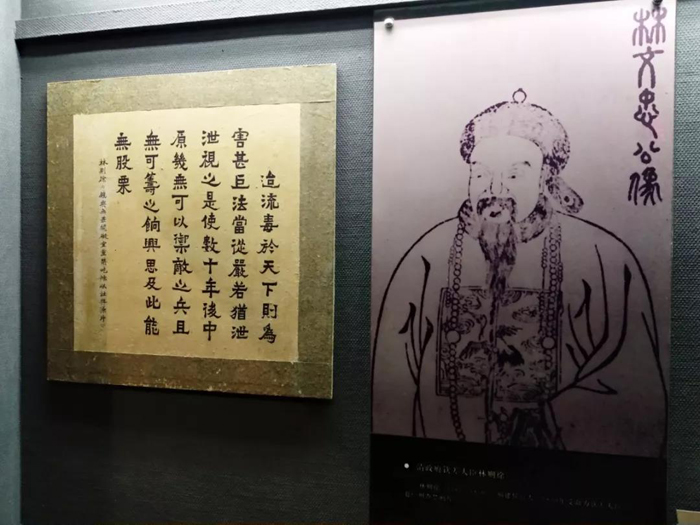 迨流毒於天下則為
害甚巨法當從嚴若猶泄
泄視之是使數十年後中
原幾無可以禦敵之兵且
無可籌之餉興思及此能
無股栗
林則徐
林文忠公像
清政府钦差大臣林则徐
林则徐